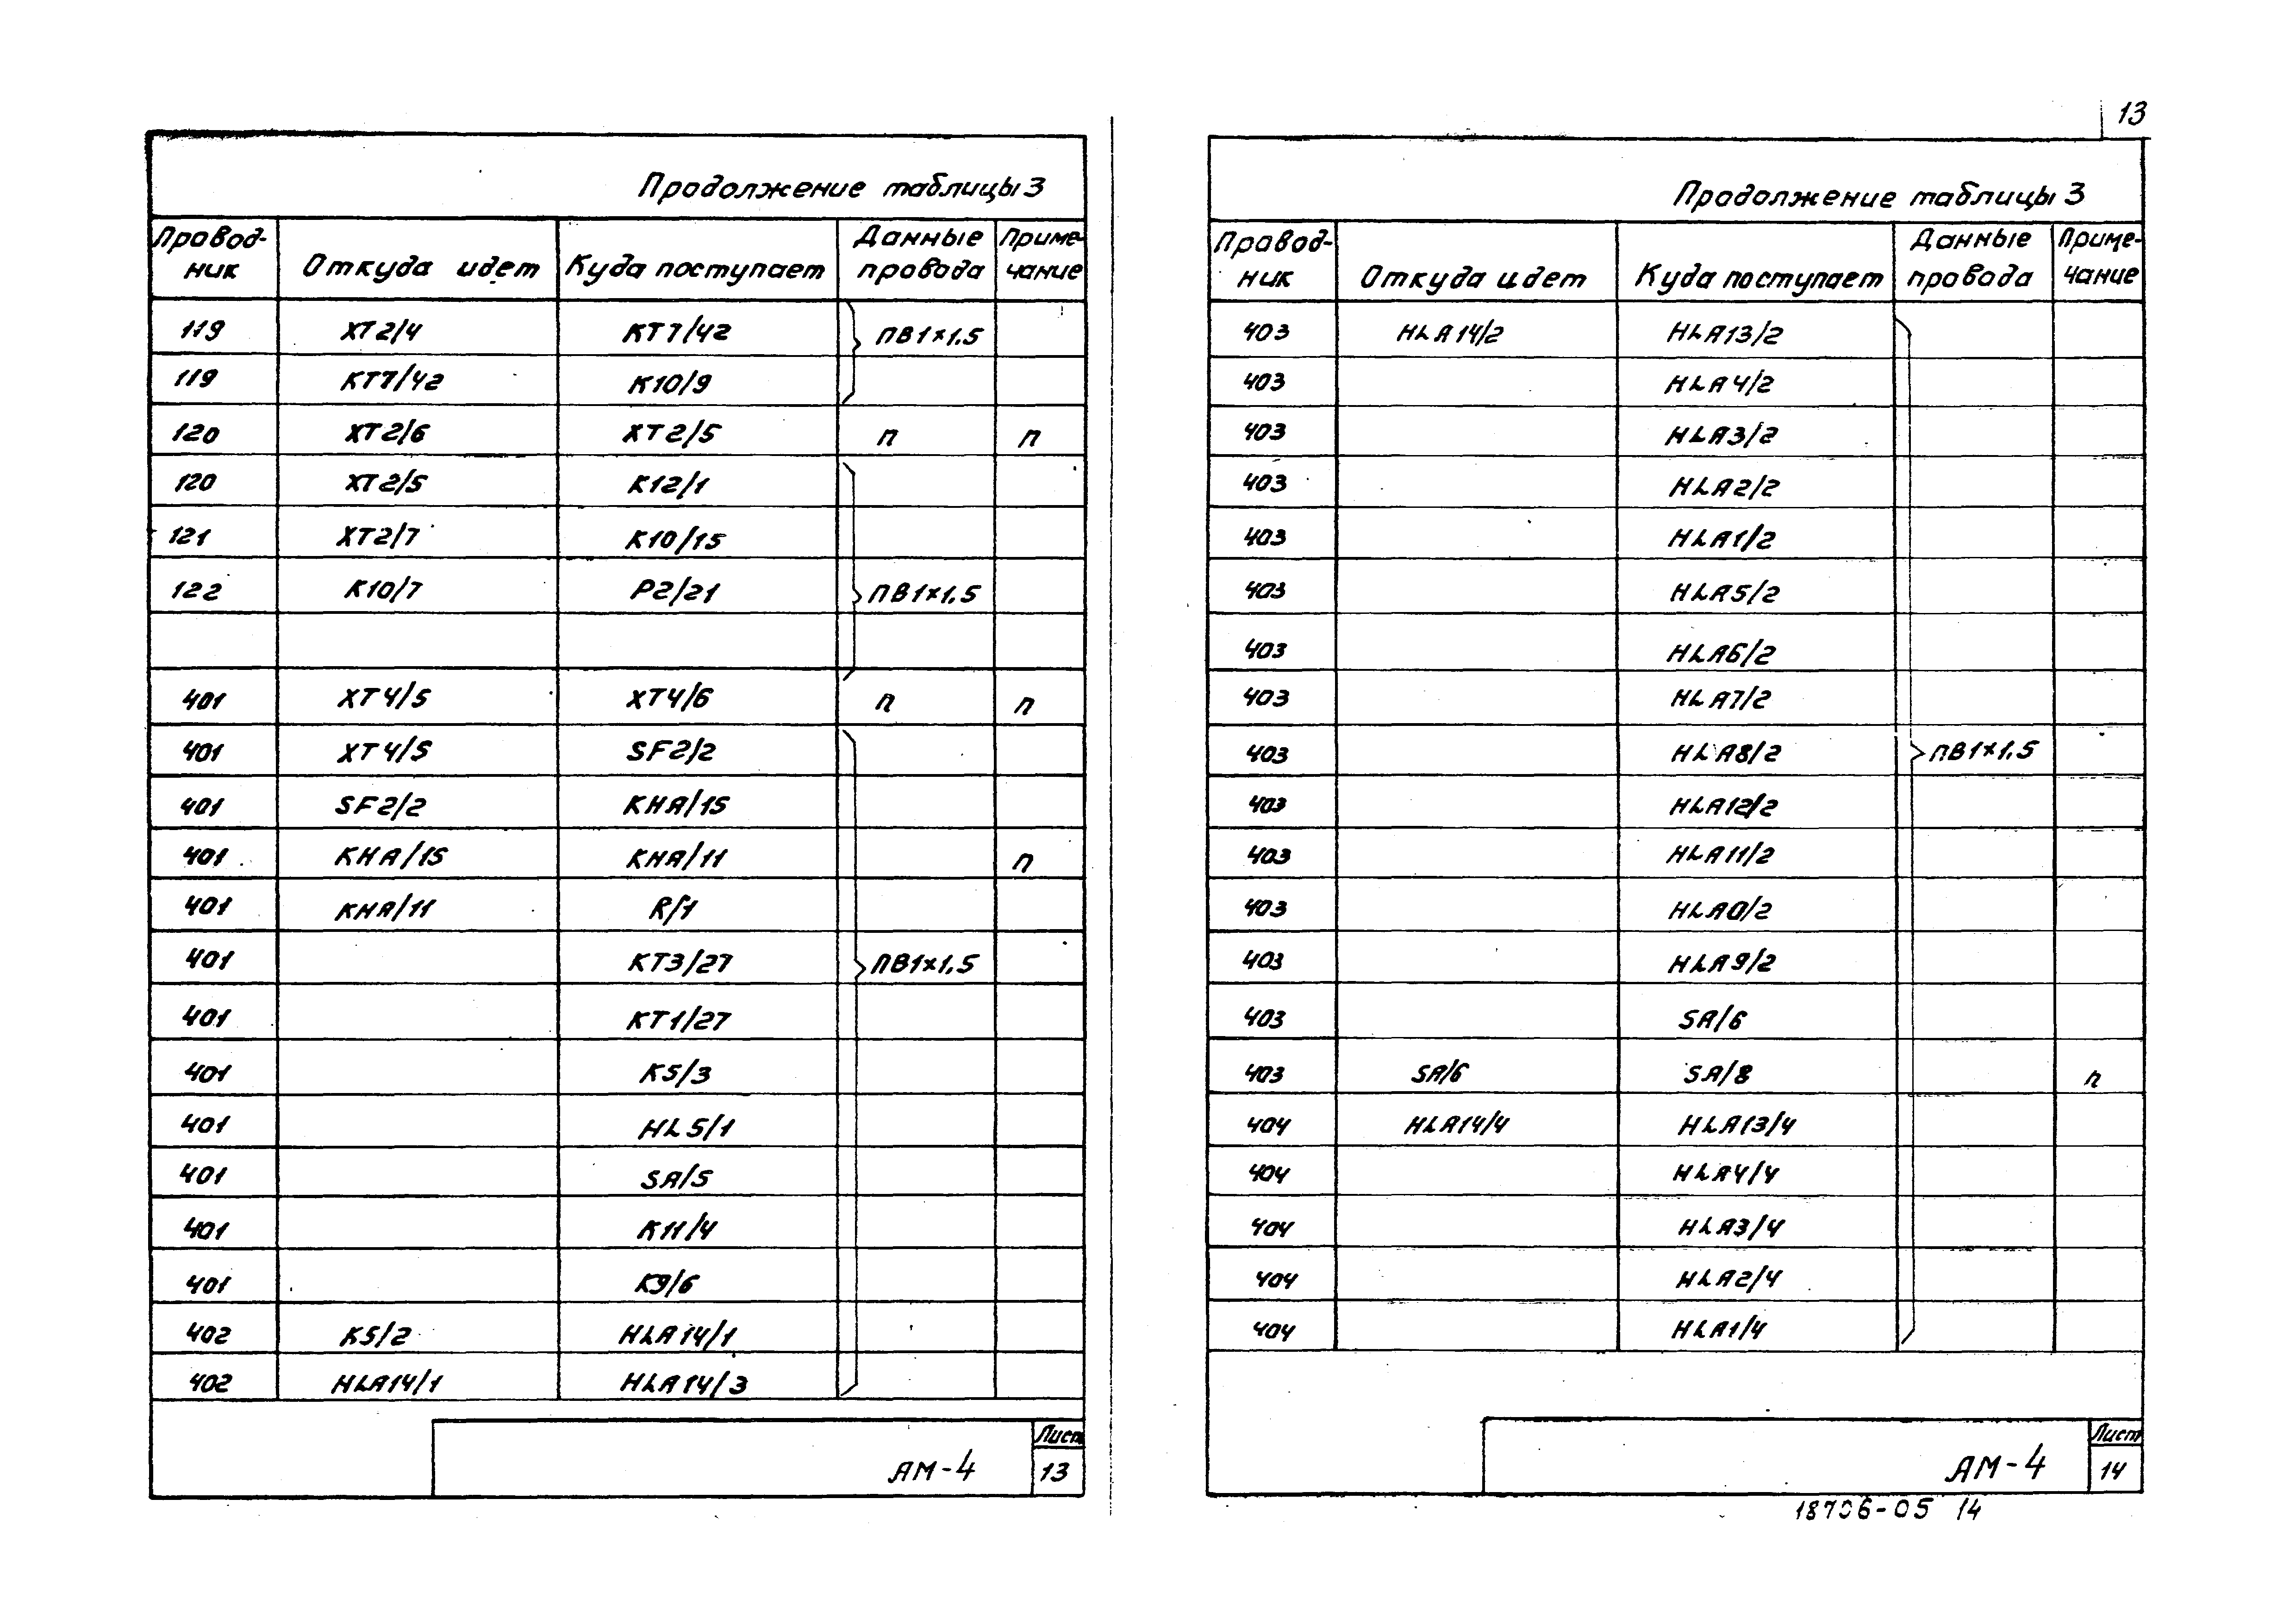 13
Продолжение таблицы 3
Провод-ник Откуда идет Куда поступает Данные провода Приме-чание
119 XT2/4 KT7/42 ПВ1×1.5
119 KT7/42 K10/9
120 XT2/6 XT2/5 п п
120 XT2/5 K12/1
121 XT2/7 K10/15
122 K10/7 P2/21 ПВ1×1.5
401 XT4/5 XT4/6 п п
401 XT4/5 SF2/2
401 SF2/2 KHA/15
401 KHA/15 KHA/11 п
401 KHA/11 R/1
401 KT3/27 ПВ1×1.5
401 KT1/27
401 K5/3
401 HL5/1
401 SA/5
401 K11/4
401 K9/6
402 K5/2 HLA14/1
402 HLA14/1 HLA14/3
Лист
АМ-4 13
Продолжение таблицы 3
Провод-ник Откуда идет Куда поступает Данные провода Приме-чание
403 HLA14/2 HLA13/2
403 HLA4/2
403 HLA3/2
403 HLA2/2
403 HLA1/2
403 HLA5/2
403 HLA6/2
403 HLA7/2
403 HLA8/2 ПВ1×1.5
403 HLA12/2
403 HLA11/2
403 HLA0/2
403 HLA9/2
403 SA/6
403 SA/6 SA/8 п
404 HLA14/4 HLA13/4
404 HLA4/4
404 HLA3/4
404 HLA2/4
404 HLA1/4
Лист
АМ-4 14
18706-05 14